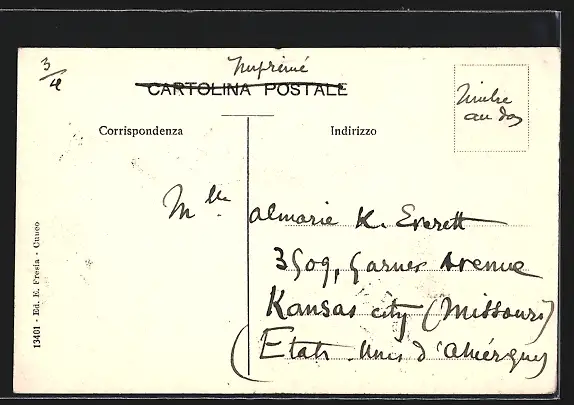 3/4
Imprimé
CARTOLINA POSTALE
Timbre
au dos
Corrispondenza
Indirizzo
Mlle Almarie K. Everett
3509, Garner Avenue
Kansas City (Missouri)
(Etats Unis d'Amérique)
13401 - Ed. E. Fresia - Cuneo